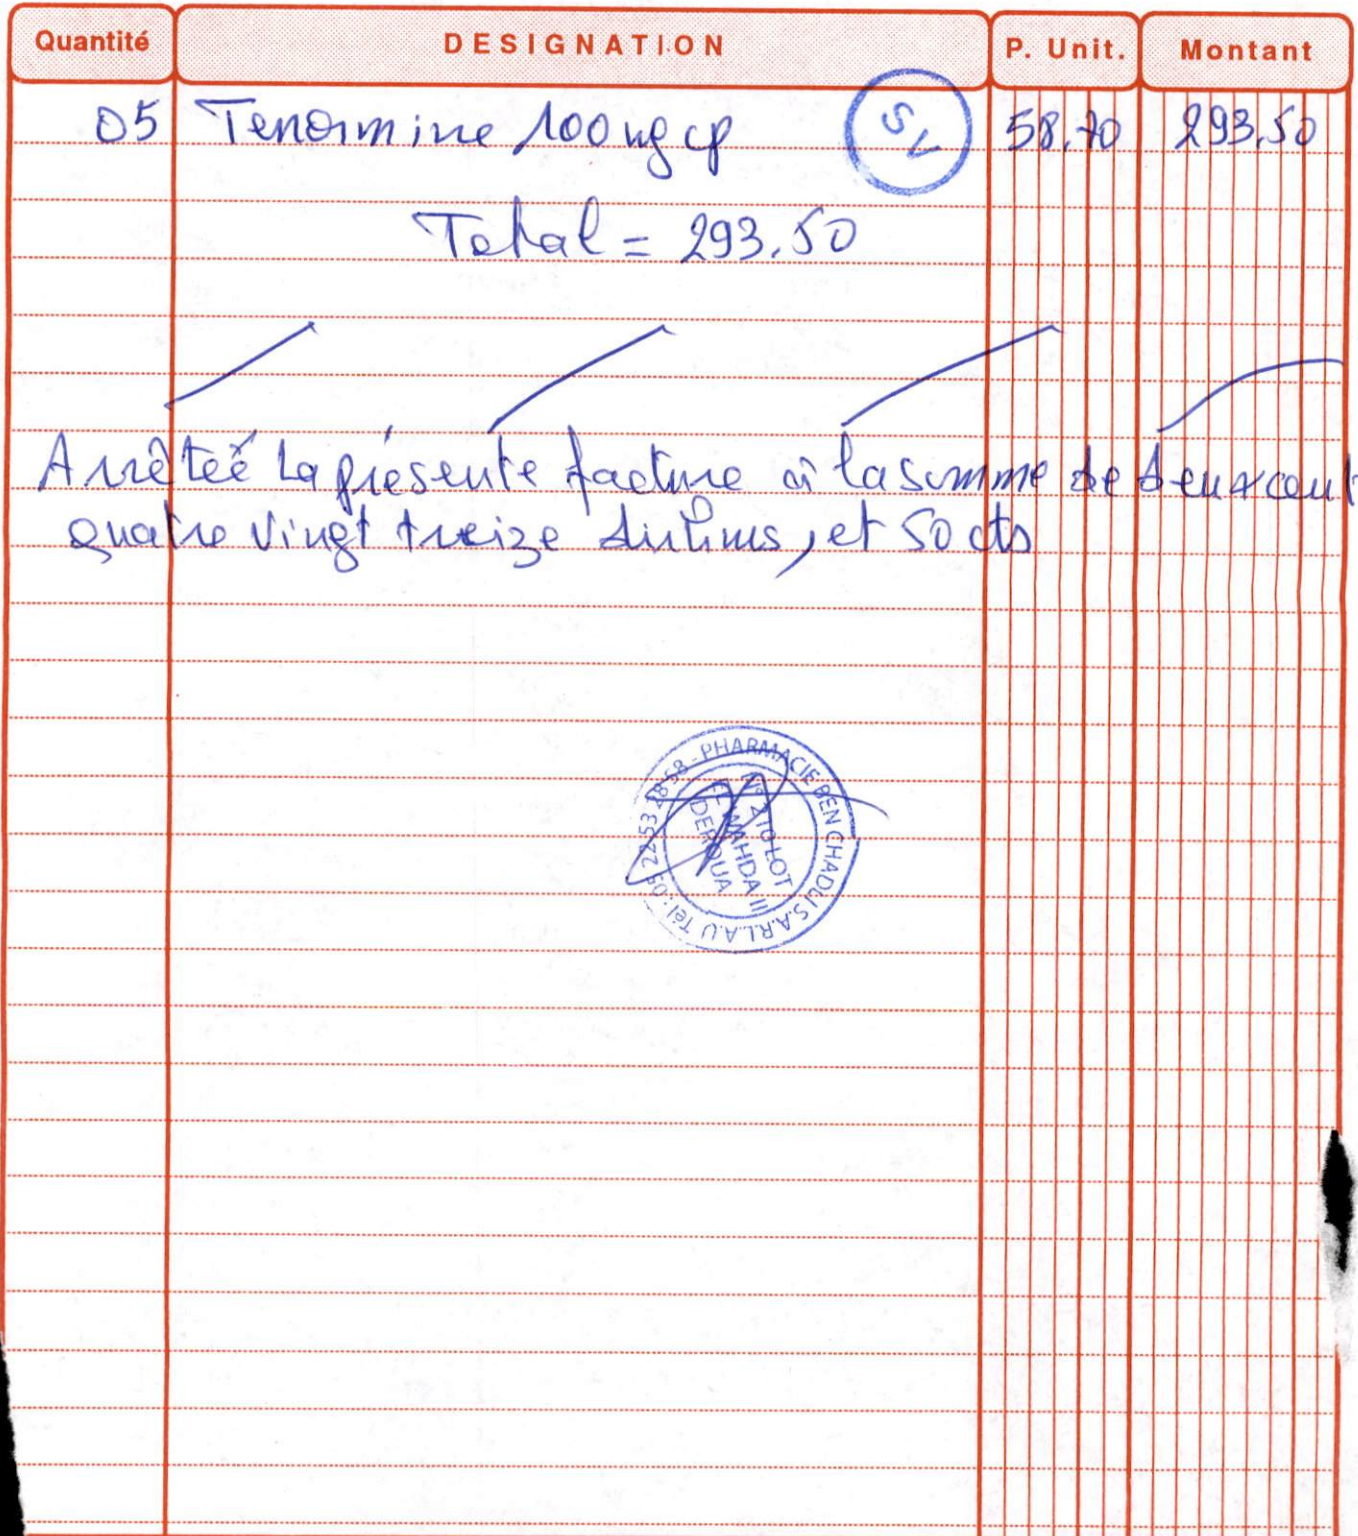 Quantité DESIGNATION P. Unit. Montant
05 Tenormine 100 mg cp SV 58.70 293.50
Total = 293.50
Arrêteé la présente facture à la somme de deux cent
quatre vingt treize dirhms, et 50 cts
PHARMACIE BEN CHADLI S.A.R.L.A.U Tél : 05 22 53 28 58 -
N° 210 LOT
EL WAHDA II
DEROUA